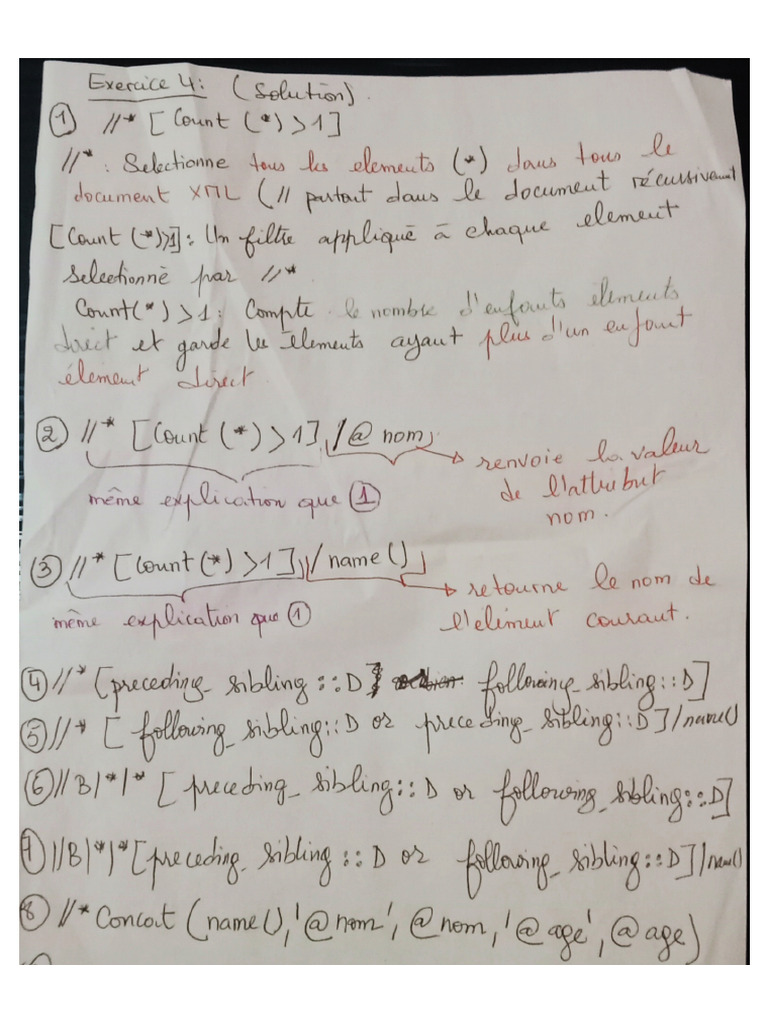 Exercice 4: (Solution).
① //* [Count (*) > 1]
//* : Selectionne tous les elements (*) dans tous le
document XML (// partout dans le document récursivement
[Count (*)>1] : Un filtre appliqué à chaque element
selectionné par //*
Count(*) > 1 : Compte le nombre d'enfants élements
direct et garde les élements ayant plus d'un enfant
élement direct.
② //* [Count (*) > 1] /@ nom
renvoie la valeur
même explication que ①
de l'attribut
nom.
③ //* [Count (*) > 1] /name()
retourne le nom de
même explication que ①
l'élément courant.
④ //* [preceding_sibling :: D] following_sibling :: D]
⑤ //* [ following_sibling :: D or preceding_sibling :: D] /name()
⑥ //B/*/* [preceding_sibling :: D or following_sibling :: D]
7 //B/*/* [preceding_sibling :: D or following_sibling :: D] /name()
⑧ //* Concat (name(), '@nom', @nom, '@age', @age)